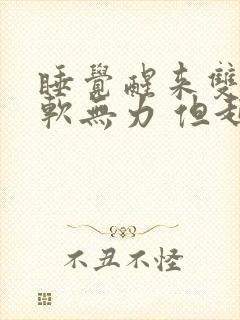 睡覺醒來雙
軟無力 但起
不丑不怪